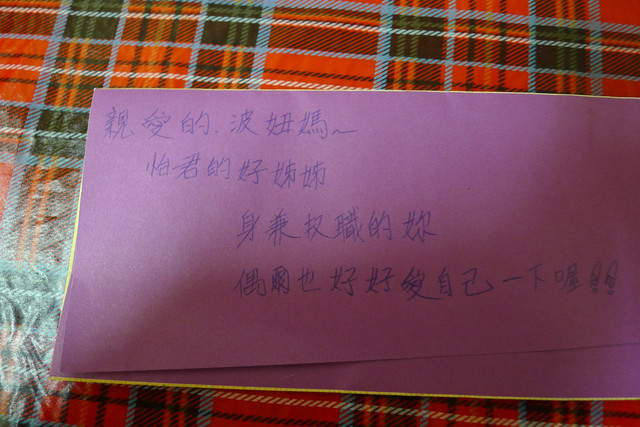 親愛的.波妞媽~
怡君的好姊姊
身兼双職的妳
偶爾也好好愛自己一下喔!!